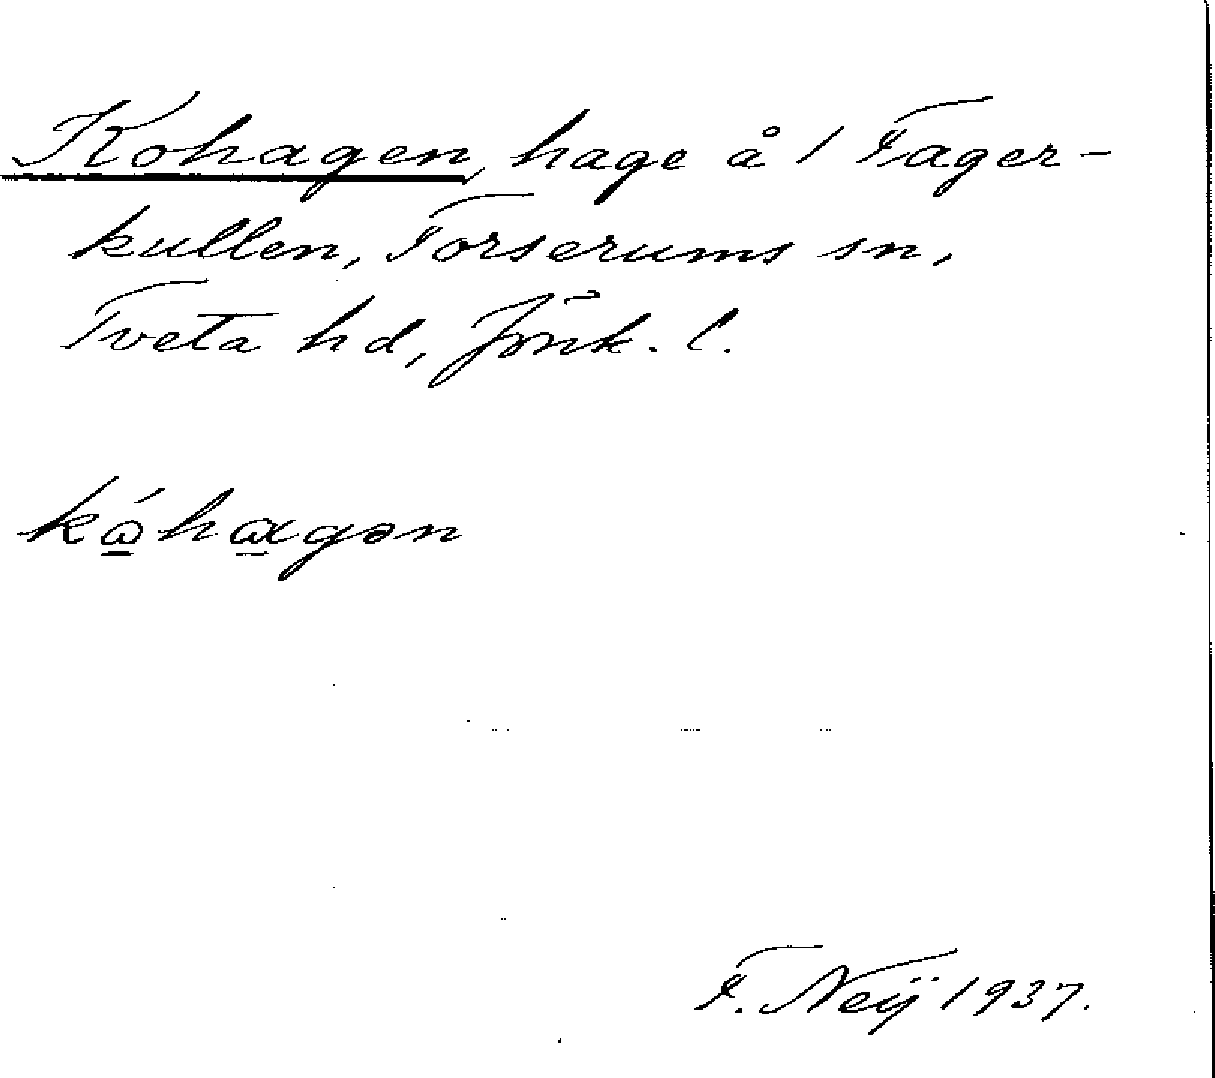 Kohagen, hage å 1 Fager-
kullen, Forserums sn,
Tveta hd, Jönk. l.
kώhαgən
F. Neij 1937.